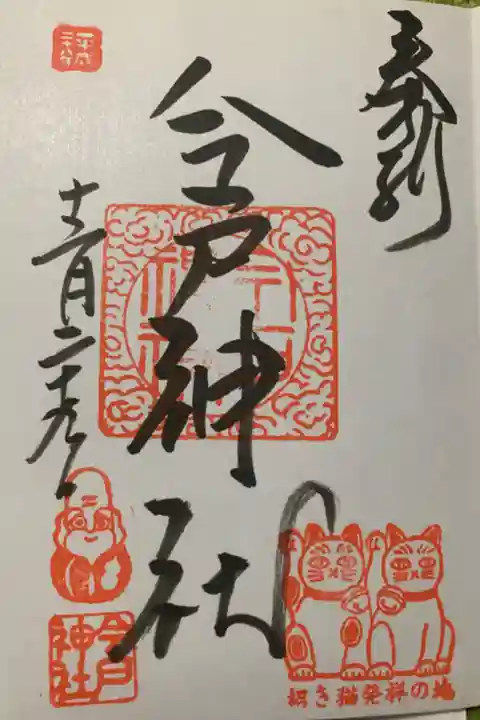 奉拝
今戸神社
十二月二十九日
今戸神社
今戸神社
招き猫発祥の地